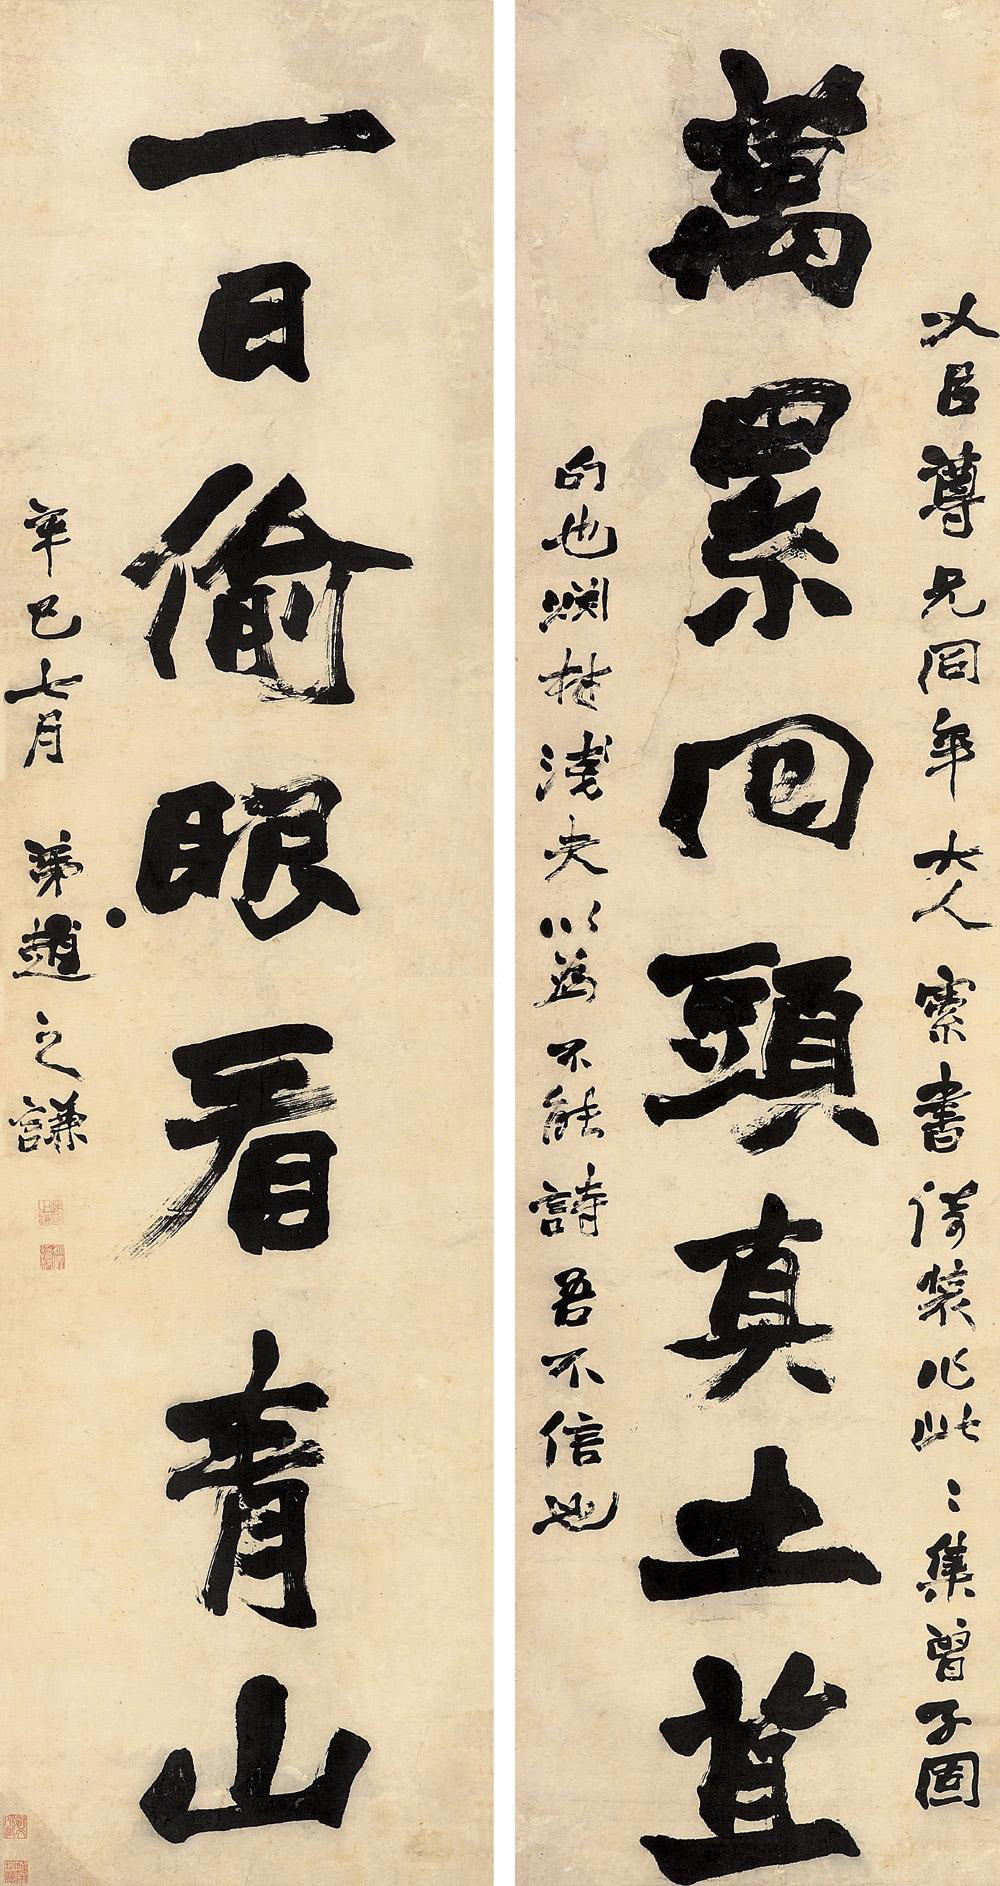 萬累回頭真土苴
父臣尊兄同年大人索書倚裝作此〻集曾子固
句也爛柯淺夫以為不能詩吾不信也
一日偷眼看青山
辛巳七月弟趙之謙